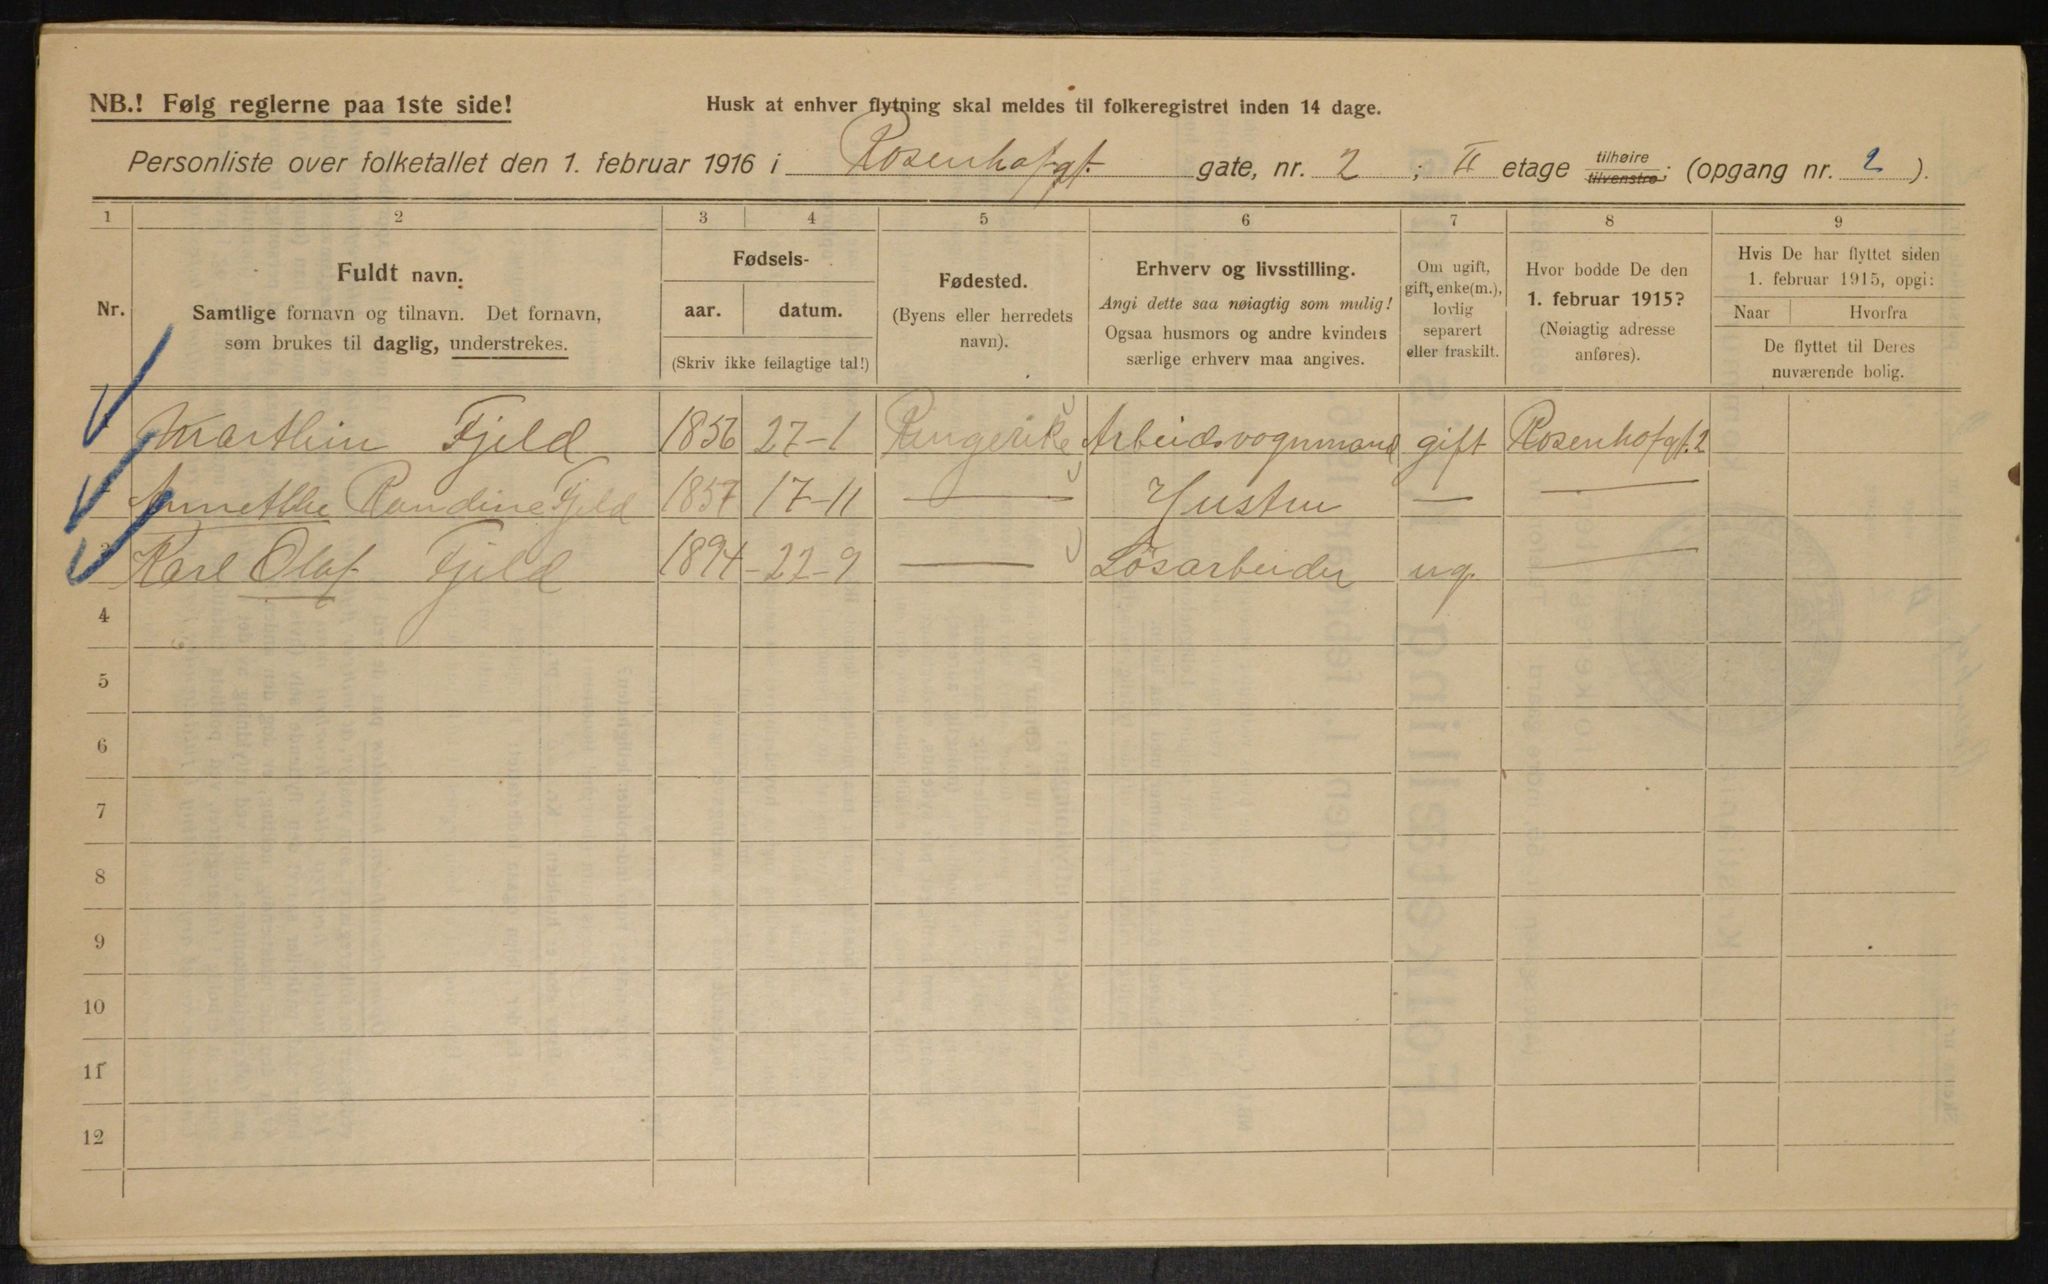 NB.! Følg reglerne paa 1ste side!
Husk at enhver flytning skal meldes til folkeregistret inden 14 dage.
Personliste over folketallet den 1. februar 1916 i Rosenhofgt. gate, nr. 2 ; II etage tilhøire tilvenstre; (opgang nr. 2 ).
1 2 3 4 5 6 7 8 9
Nr.
Fuldt navn.
Samtlige fornavn og tilnavn. Det fornavn,
som brukes til daglig, understrekes.
Fødsels-
aar. datum.
(Skriv ikke feilagtige tal!)
Fødested.
(Byens eller herredets
navn).
Erhverv og livsstilling.
Angi dette saa nøiagtig som mulig!
Ogsaa husmors og andre kvinders
særlige erhverv maa angives.
Om ugift,
gift, enke(m.),
lovlig
separert
eller fraskilt.
Hvor bodde De den
1. februar 1915?
(Nøiagtig adresse
anføres).
Hvis De har flyttet siden
1. februar 1915, opgi:
Naar Hvorfra
De flyttet til Deres
nuværende bolig.
Marthin Fjeld 1856 27-1 Ringerike Arbeidsvognmand gift Rosenhofgt. 2
Annethe Randine Fjeld 1857 17-11 — Hustru — —
3 Karl Olaf Fjeld 1894 - 22-9 — Løsarbeider ug. —
4
5
6
7
8
9
10
11
12